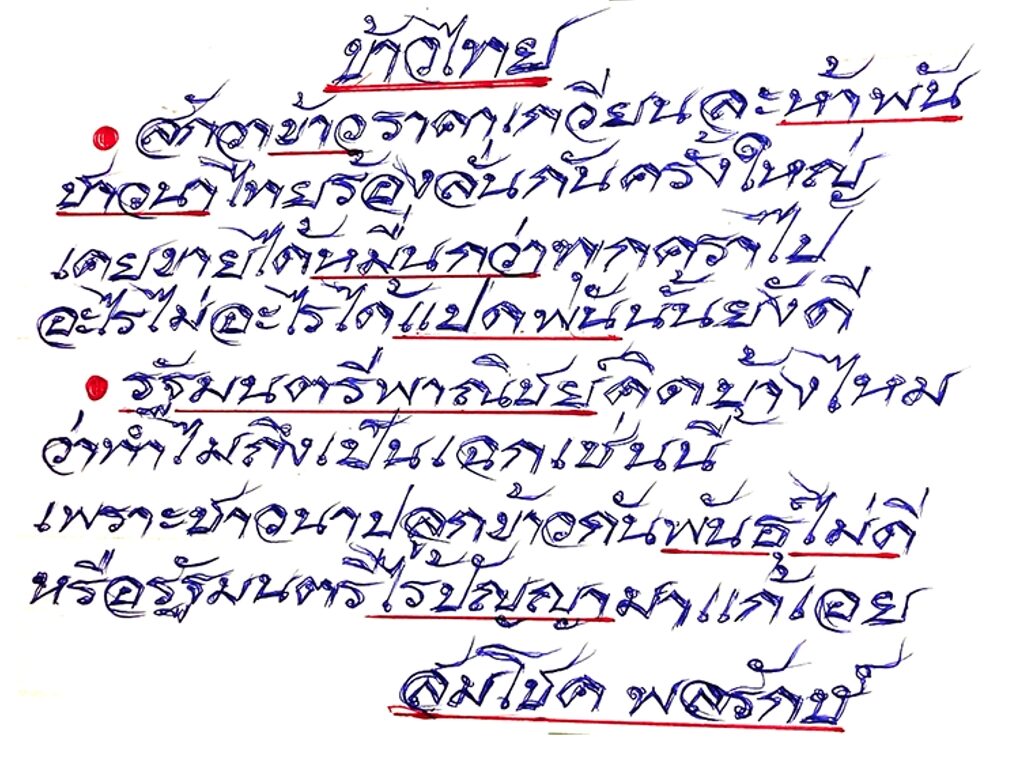 ข้าวไทย
สักวาข้าวราคาเกวียนละห้าพัน
ชาวนาไทยร้องลั่นกันครั้งใหญ่
เคยขายได้หมื่นกว่าทุกคราไป
อะไรไม่อะไรได้แปดพันนั้นยังดี
รัฐมนตรีพาณิชย์คิดบ้างไหม
ว่าทำไมถึงเป็นเฉกเช่นนี้
เพราะชาวนาปลูกข้าวกันพันธุ์ไม่ดี
หรือรัฐมนตรีไร้ปัญญามาแก้เอย
สมโชค พลรักษ์